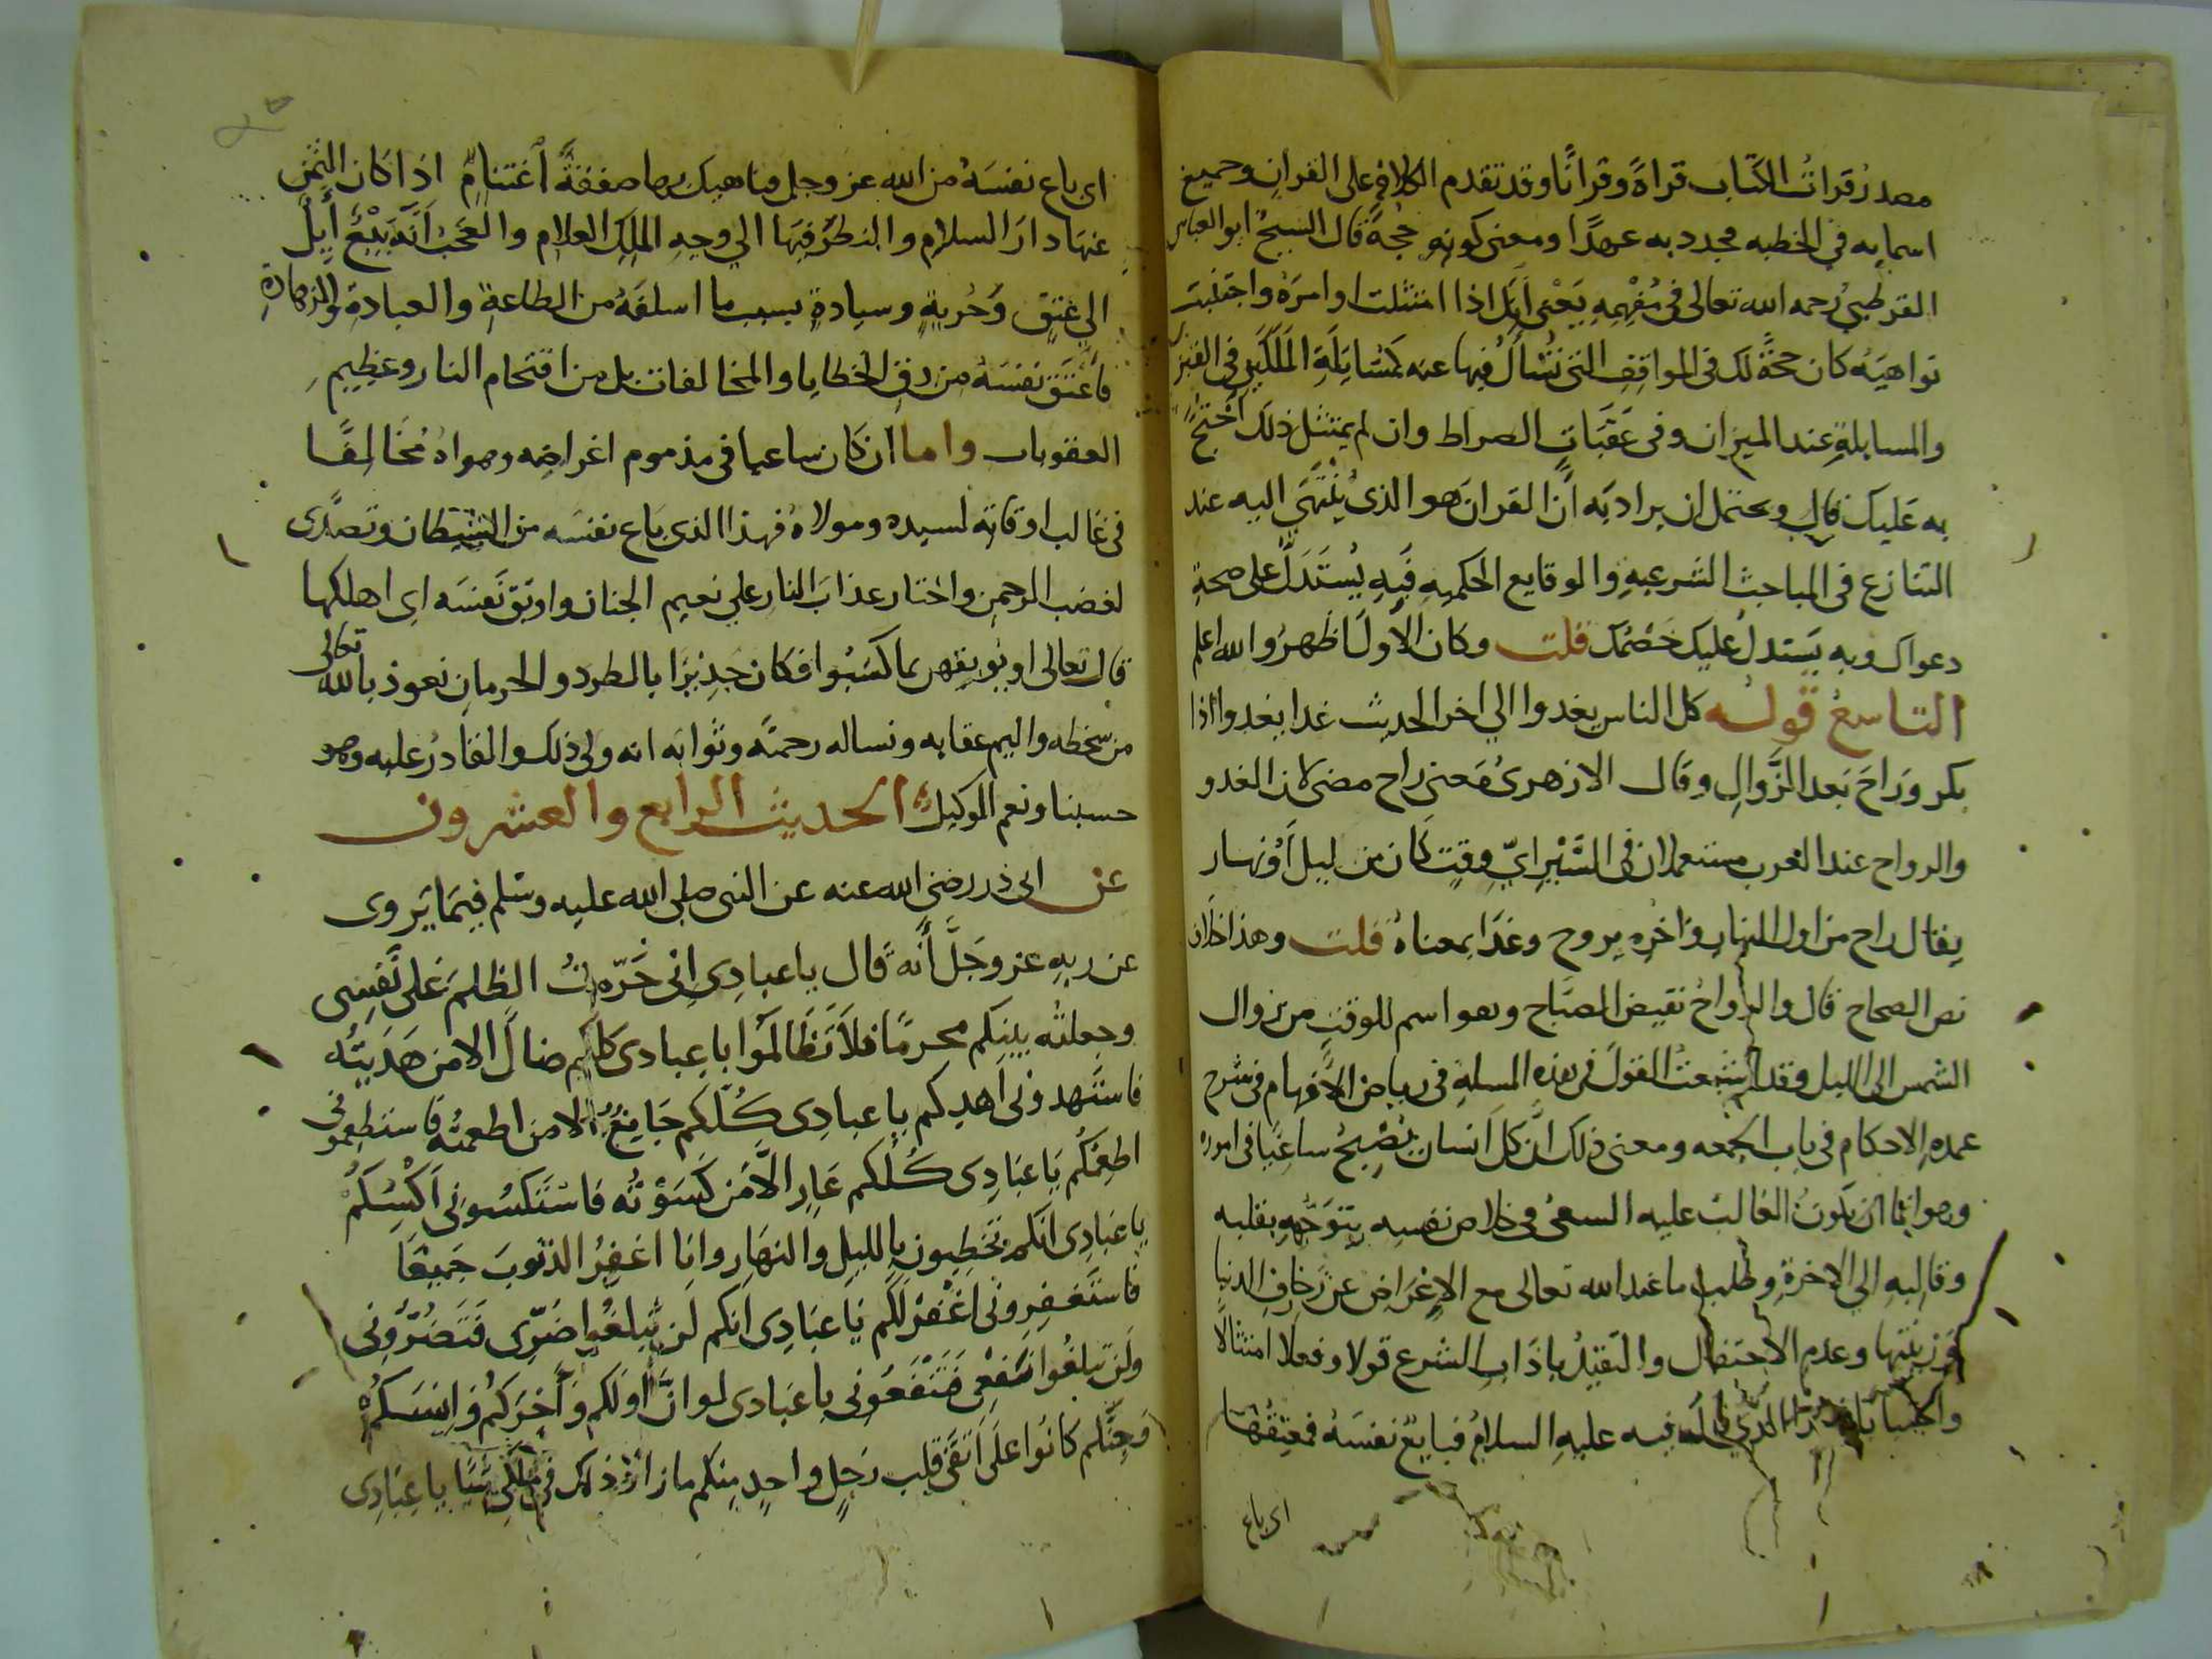 مصدر قرات الكتاب قراة وقرانا وقد تقدم الكلام على القران وجميع
اسمايه في الخطبه مجدد به عهدا ومعنى كونه حجة قال الشيخ ابو العباس
القرطبي رحمه الله تعالى في مفهمه يعنى انك اذا امتثلت اوامره واجتنبت
نواهيه كان حجة لك في المواقف التى تسال فيها عنه كمسايلة الملكين في القبر
والمسايلة عند الميزان وفى عقبات الصراط وان لم يمتثل ذلك احتج
به عليك قال ويحتمل ان يراد به ان القران هو الذى ينتهي اليه عند
التنازع في المباحث الشرعيه والوقايع الحكميه فبه يستدل على صحة
دعواك وبه يستدل عليك خصمك قلت وكان الاول اظهر والله اعلم
التاسع قوله كل الناس يغدوا الي اخر الحديث غدا يغدوا اذا
بكر وراح بعد الزوال وقال الازهرى معنى راح مضى لان الغدو
والرواح عند العرب مستعملان في السير اي وقت كان من ليل او نهار
يقال راح من اول النهار واخره يروح وغدا بمعناه قلت وهذا خلاف
نص الصحاح قال والرواح نقيض الصباح وهو اسم للوقت من زوال
الشمس الى الليل وقد اشبعت القول في هذه المسلة في رياض الافهام في شرح
عمدة الاحكام في باب الجمعه ومعنى ذلك ان كل انسان يصبح ساعيا في اموره
وهو اما ان يكون الغالب عليه السعى في خلاص نفسه يتوجه بقلبه
وقالبه الي الاخرة وطلب ما عند الله تعالى مع الاعراض عن زخارف الدنيا
وزينتها وعدم الاحتفال والتقيد باداب الشرع قولا وفعلا امتثالا
واجتنابا فهذا الذي قال فيه عليه السلام فبايع نفسه فمعتقها
اى باع
اى باع نفسه من الله عز وجل وناهيك بها صفقة اغتنام اذا كان الثمن
عنها دار السلام والنظر فيها الي وجه الملك العلام والعجب انه بيع ايل
الي عتق وحرية وسيادة بسبب ما اسلفه من الطاعة والعبادة والزهادة
فاعتق نفسه من رق الخطايا والمخالفات بل من اقتحام النار وعظيم
العقوبات واما ان كان ساعيا في مذموم اغراضه وهواه مخالفا
في غالب اوقاته لسيده ومولاه فهذا الذى باع نفسه من الشيطان وتصدى
لغضب الرحمن واختار عذاب النار علي نعيم الجنان واوبق نفسه اى اهلكها
قال تعالى او يوبقهن بما كسبوا فكان جديرا بالطرد والحرمان نعوذ بالله تعالى
من سخطه واليم عقابه ونساله رحمته وثوابه انه ولى ذلك والقادر عليه وهو
حسبنا ونعم الوكيل الحديث الرابع والعشرون
عن ابى ذر رضى الله عنه عن النبى صلى الله عليه وسلم فيما يروى
عن ربه عز وجل انه قال يا عبادى انى حرمت الظلم على نفسى
وجعلته بينكم محرما فلا تظالموا يا عبادى كلكم ضال الا من هديته
فاستهدونى اهدكم يا عبادى كلكم جايع الا من اطعمته فاستطعمونى
اطعمكم يا عبادى كلكم عار الا من كسوته فاستكسونى اكسكم
يا عبادى انكم تخطيون بالليل والنهار وانا اغفر الذنوب جميعا
فاستغفرونى اغفر لكم يا عبادى انكم لن تبلغوا ضرى فتضرونى
ولن تبلغوا نفعى فتنفعونى يا عبادى لو ان اولكم واخركم وانسكم
وجنكم كانوا على اتقى قلب رجل واحد منكم ما زاد ذلك في ملكى شيا يا عبادى